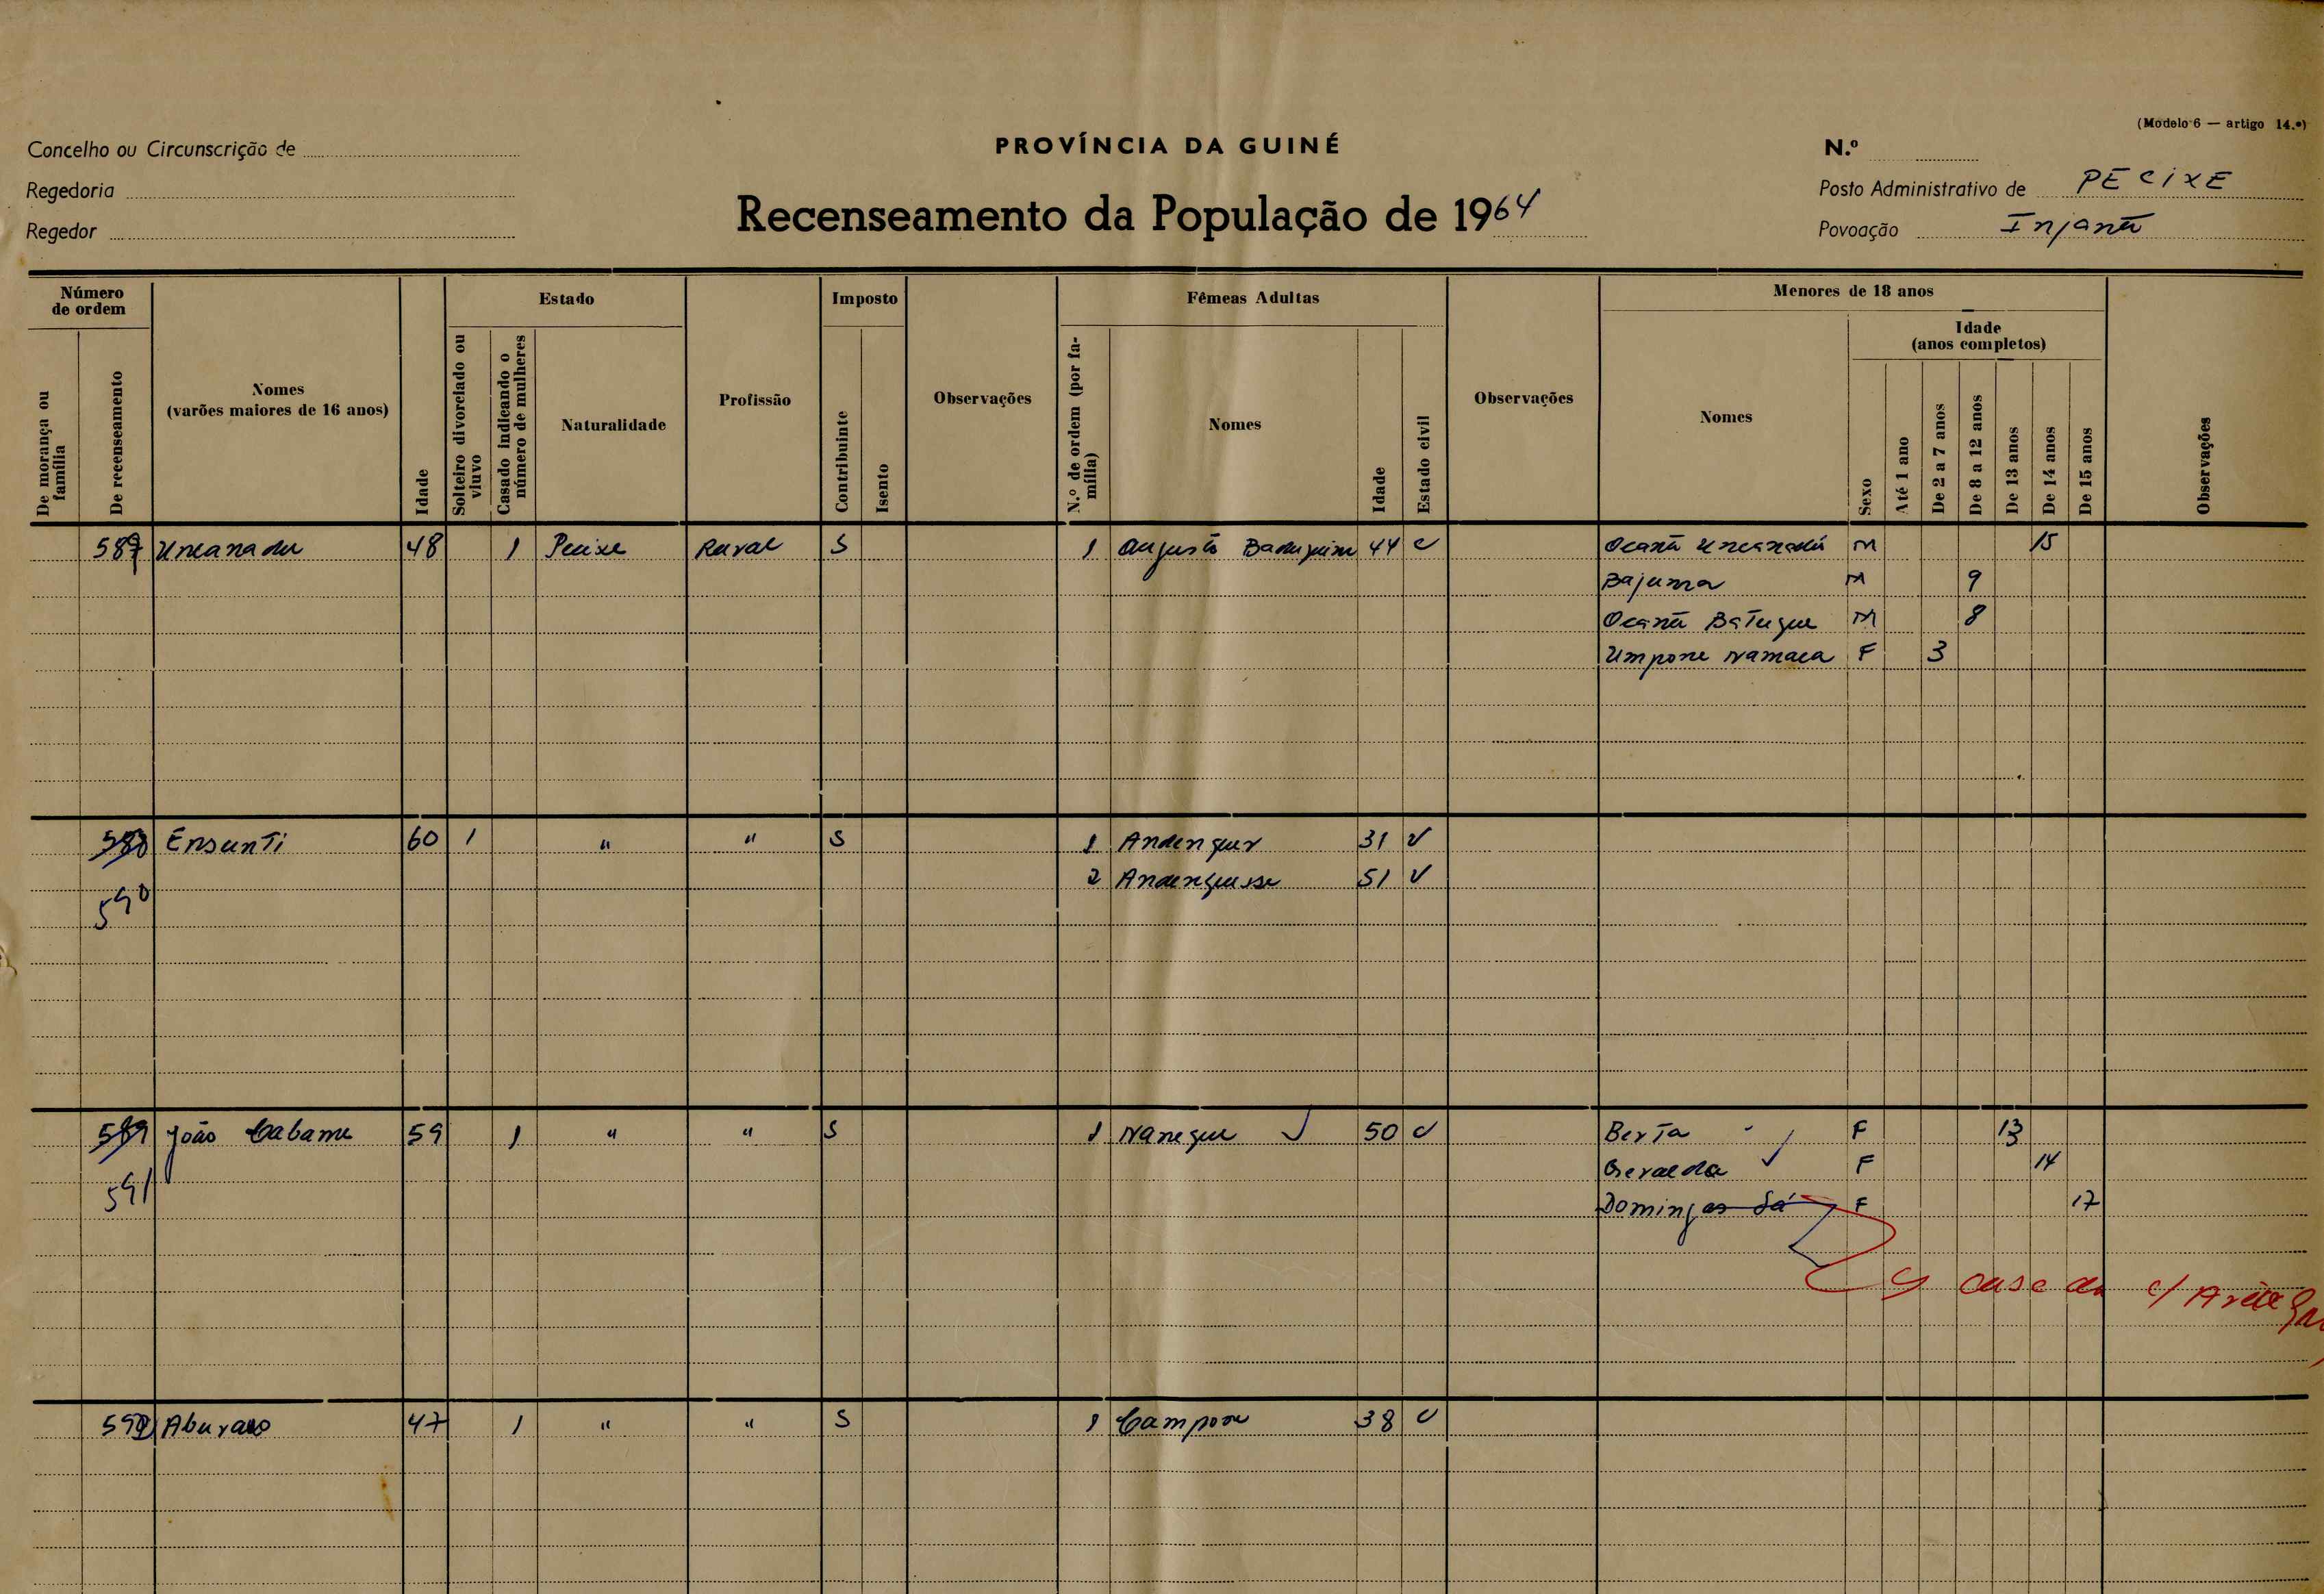 (Modelo 6 — artigo 14.º)
Concelho ou Circunscrição de
PROVÍNCIA DA GUINÉ
N.º
Regedoria
Recenseamento da População de 1964
Posto Administrativo de PECIXE
Regedor
Povoação Injanã
Número de ordem
Estado
Imposto
Fêmeas Adultas
Menores de 18 anos
Idade (anos completos)
De morança ou família
De recenseamento
Nomes (varões maiores de 16 anos)
Idade
Solteiro divorciado ou viuvo
Casado indicando o número de mulheres
Naturalidade
Profissão
Contribuinte
Isento
Observações
N.º de ordem (por família)
Nomes
Idade
Estado civil
Observações
Nomes
Sexo
Até 1 ano
De 2 a 7 anos
De 8 a 12 anos
De 13 anos
De 14 anos
De 15 anos
Observações
Uncanadu 48 1 Pecixe Rural S 1 Augusta 44 C Ocanã Uncanadú M 15
Bajuma M 9
Ocanã Batuque M 8
Umpone Namaca F 3
588 Ensunti 60 1 " " S 1 31 V
590 2 Andenguesse 51 V
589 João Cabame 59 1 " " S 1 Nanegue 50 C Berta F 13
591 Geralda F 14
Domingas Sá F 17
casada c/
Aburaso 47 1 " " S 1 Campone 38 C